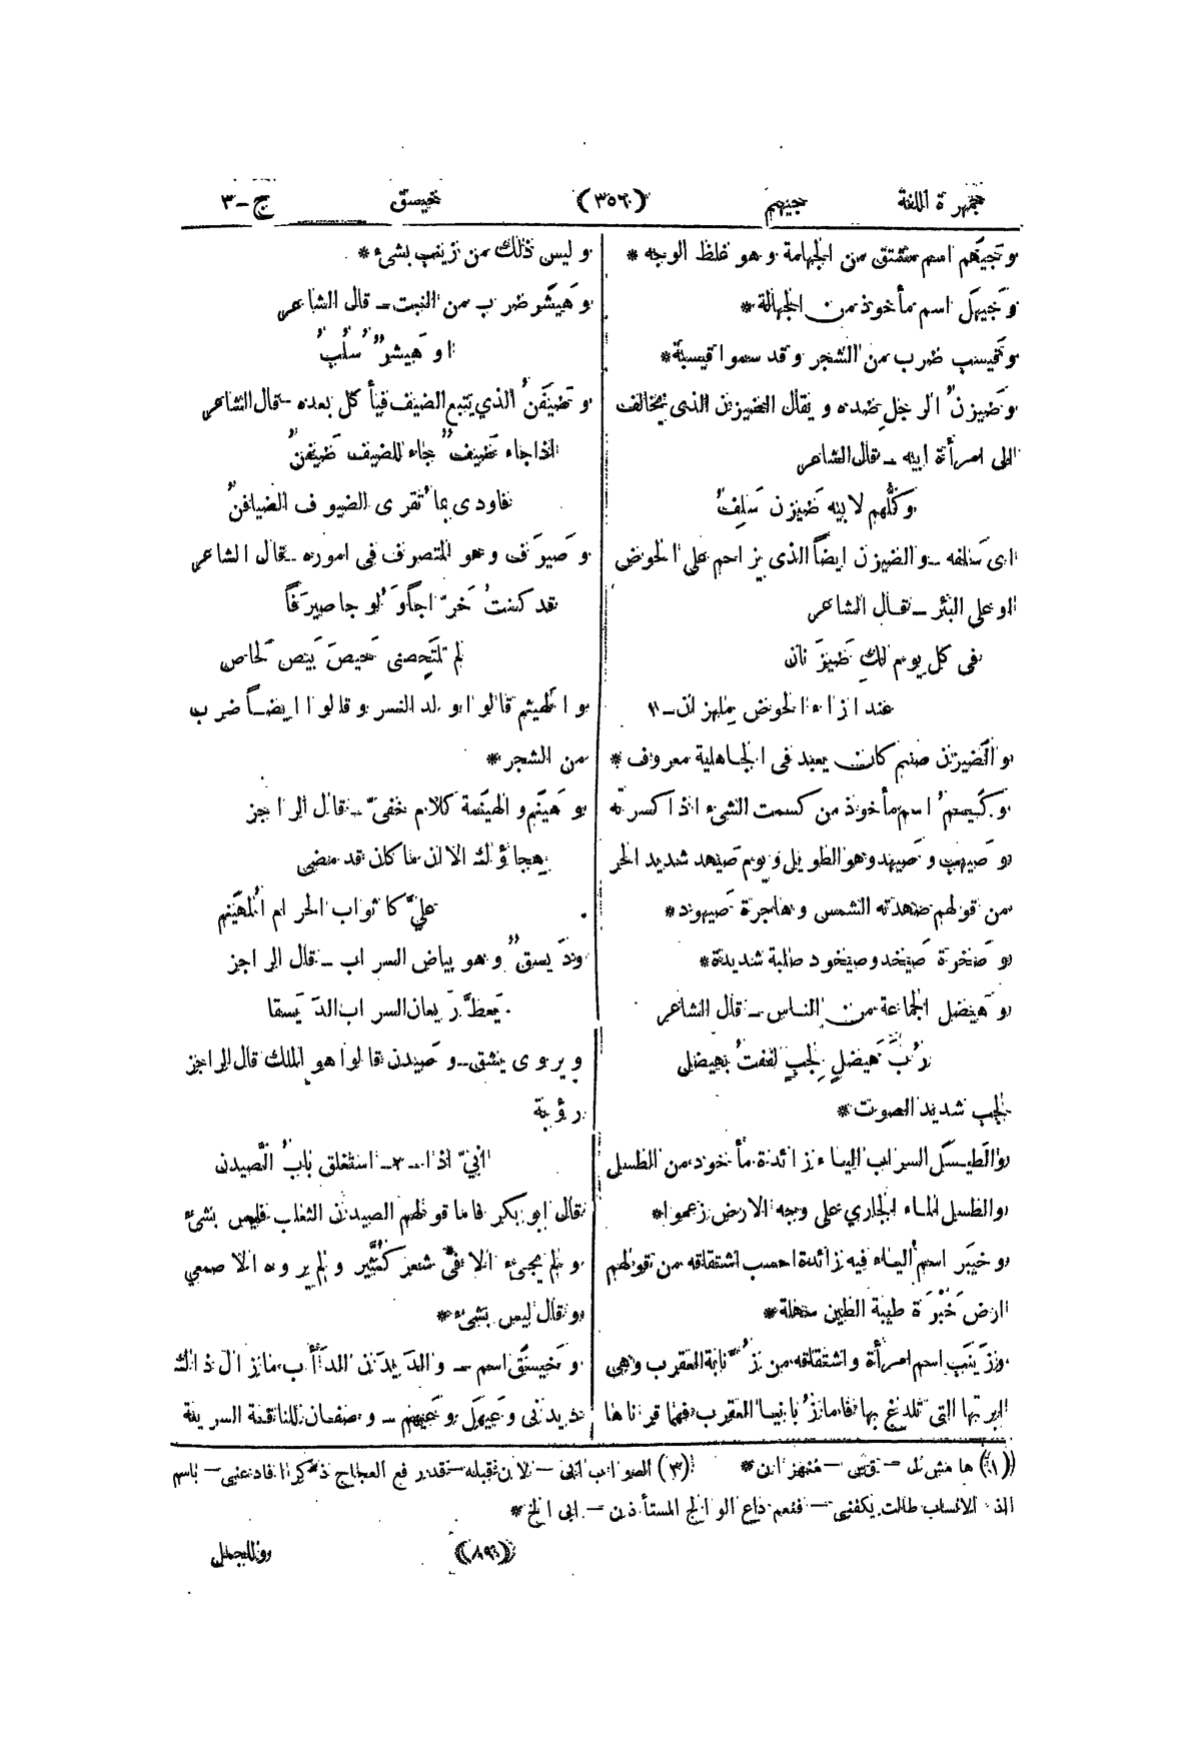 جمهرة اللغة
جيهم
(٣٥٦)
خيسق
ج-٣
وجَيهَم اسم مشتق من الجهامة وهو غلظ الوجه *
وجَيهَل اسم مأخوذ من الجهالة *
وقَيسب ضرب من الشجر وقد سموا قيسبة *
وضَيزنُ الرجل ضده ويقال الضيزن الذى يخالف
الى امرأة ابيه ــ قال الشاعر
وكلُّهم لابيه ضَيزن سَلِفُ
اى سَلفه ــ والضيزن ايضاً الذى يزاحم على الحوض
او على البئر ــ قال الشاعر
فى كل يوم لكِ ضَيزَنان
عند ازاء الحوض ملهزان ــ ١
والضَيزن صنم كان يعبد فى الجاهلية معروف *
وكَيسمُ اسم مأخوذ من كسمت الشىء اذا كسرته
وصَيهب وصَيهد وهو الطويل ويوم صَيهد شديد الحر
من قولهم صهدته الشمس وهاجرة صَيهود *
وصَخرة صَيخد وصيخود صلبة شديدة *
وهَيضل الجماعة من الناس ــ قال الشاعر
رُبَّ هَيضلٍ لجِبٍ لففتُ بهيضل
لجب شديد الصوت *
والطَيسَل السراب الياء زائدة مأخوذ من الطسل
والطسل الماء الجاري على وجه الارض زعموا *
وخيبَر اسم الياء فيه زائدة احسب اشتقاقه من قولهم
ارض خَبْرَة طيبة الطين سهلة *
وزَينَب اسم امرأة واشتقاقه من زُنابة العقرب وهى
ابرتها التى تلدغ بها فاما زُبانيا العقرب فهما قرناها
وليس ذلك من زينب بشىء *
وهَيشَر ضرب من النبت ــ قال الشاعر
او هَيشرٌ سُلُبُ
وضَيفَنُ الذي يتبع الضيف فيأكل بعده ــ قال الشاعر
اذا جاء ضيفٌ جاء للضيف ضَيفنٌ
فاودى بما تُقرى الضيوف الضيافنُ
وصَيرَف وهو المتصرف فى اموره ــ قال الشاعر
قد كنتُ خَرّاجاً وَلُوجا صيرَفاً
لم تلتَحِصنى حَيصَ بَيصَ لَحاصِ
والهَيثم قالوا ولد النسر وقالوا ايضاً ضرب
من الشجر *
وهَينَم والهينَمة كلام خفىّ ــ قال الراجز
هجاؤك الا ان ما كان قد مضى
عليّ كاثواب الحرام المُهَينِم
ودَيسقٌ وهو بياض السراب ــ قال الراجز
يَعطّ رَيعان السراب الدَيسَقا
ويروى ينشق ــ وصَيدن قالوا هو الملك قال الراجز
رؤبة
انيّ اذا ــ ٣ ــ استغلق بابُ الصَيدن
قال ابو بكر فاما قولهم الصيدن الثعلب فليس بشئ
ولم يجىء الا فى شعر كُثَيِّر ولم يروه الاصمعي
وقال ليس بشىء *
وخَيسَق اسم ــ والدَيدَن الدأب ما زال ذاك
ديدنى وعَيهَل وعَيهَم ــ وصفان للناقة السريعة
(١) هامش ل – قس – منهزان * (٣) الصواب انى – لان قبله – تقدير فع العجاج ذكرا فادعنى – باسم
اذ الانساب طالت يكفنى – فنعم داع الوالج المستأذن – ابى الخ *
(٨٩)
والجمل